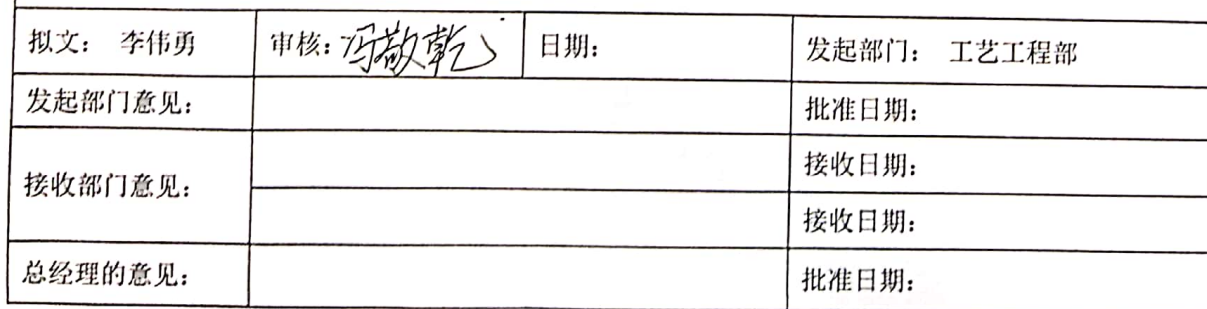 拟文： 李伟勇 审核：冯敬乾 日期： 发起部门： 工艺工程部
发起部门意见： 批准日期：
接收部门意见： 接收日期：
接收日期：
总经理的意见： 批准日期：